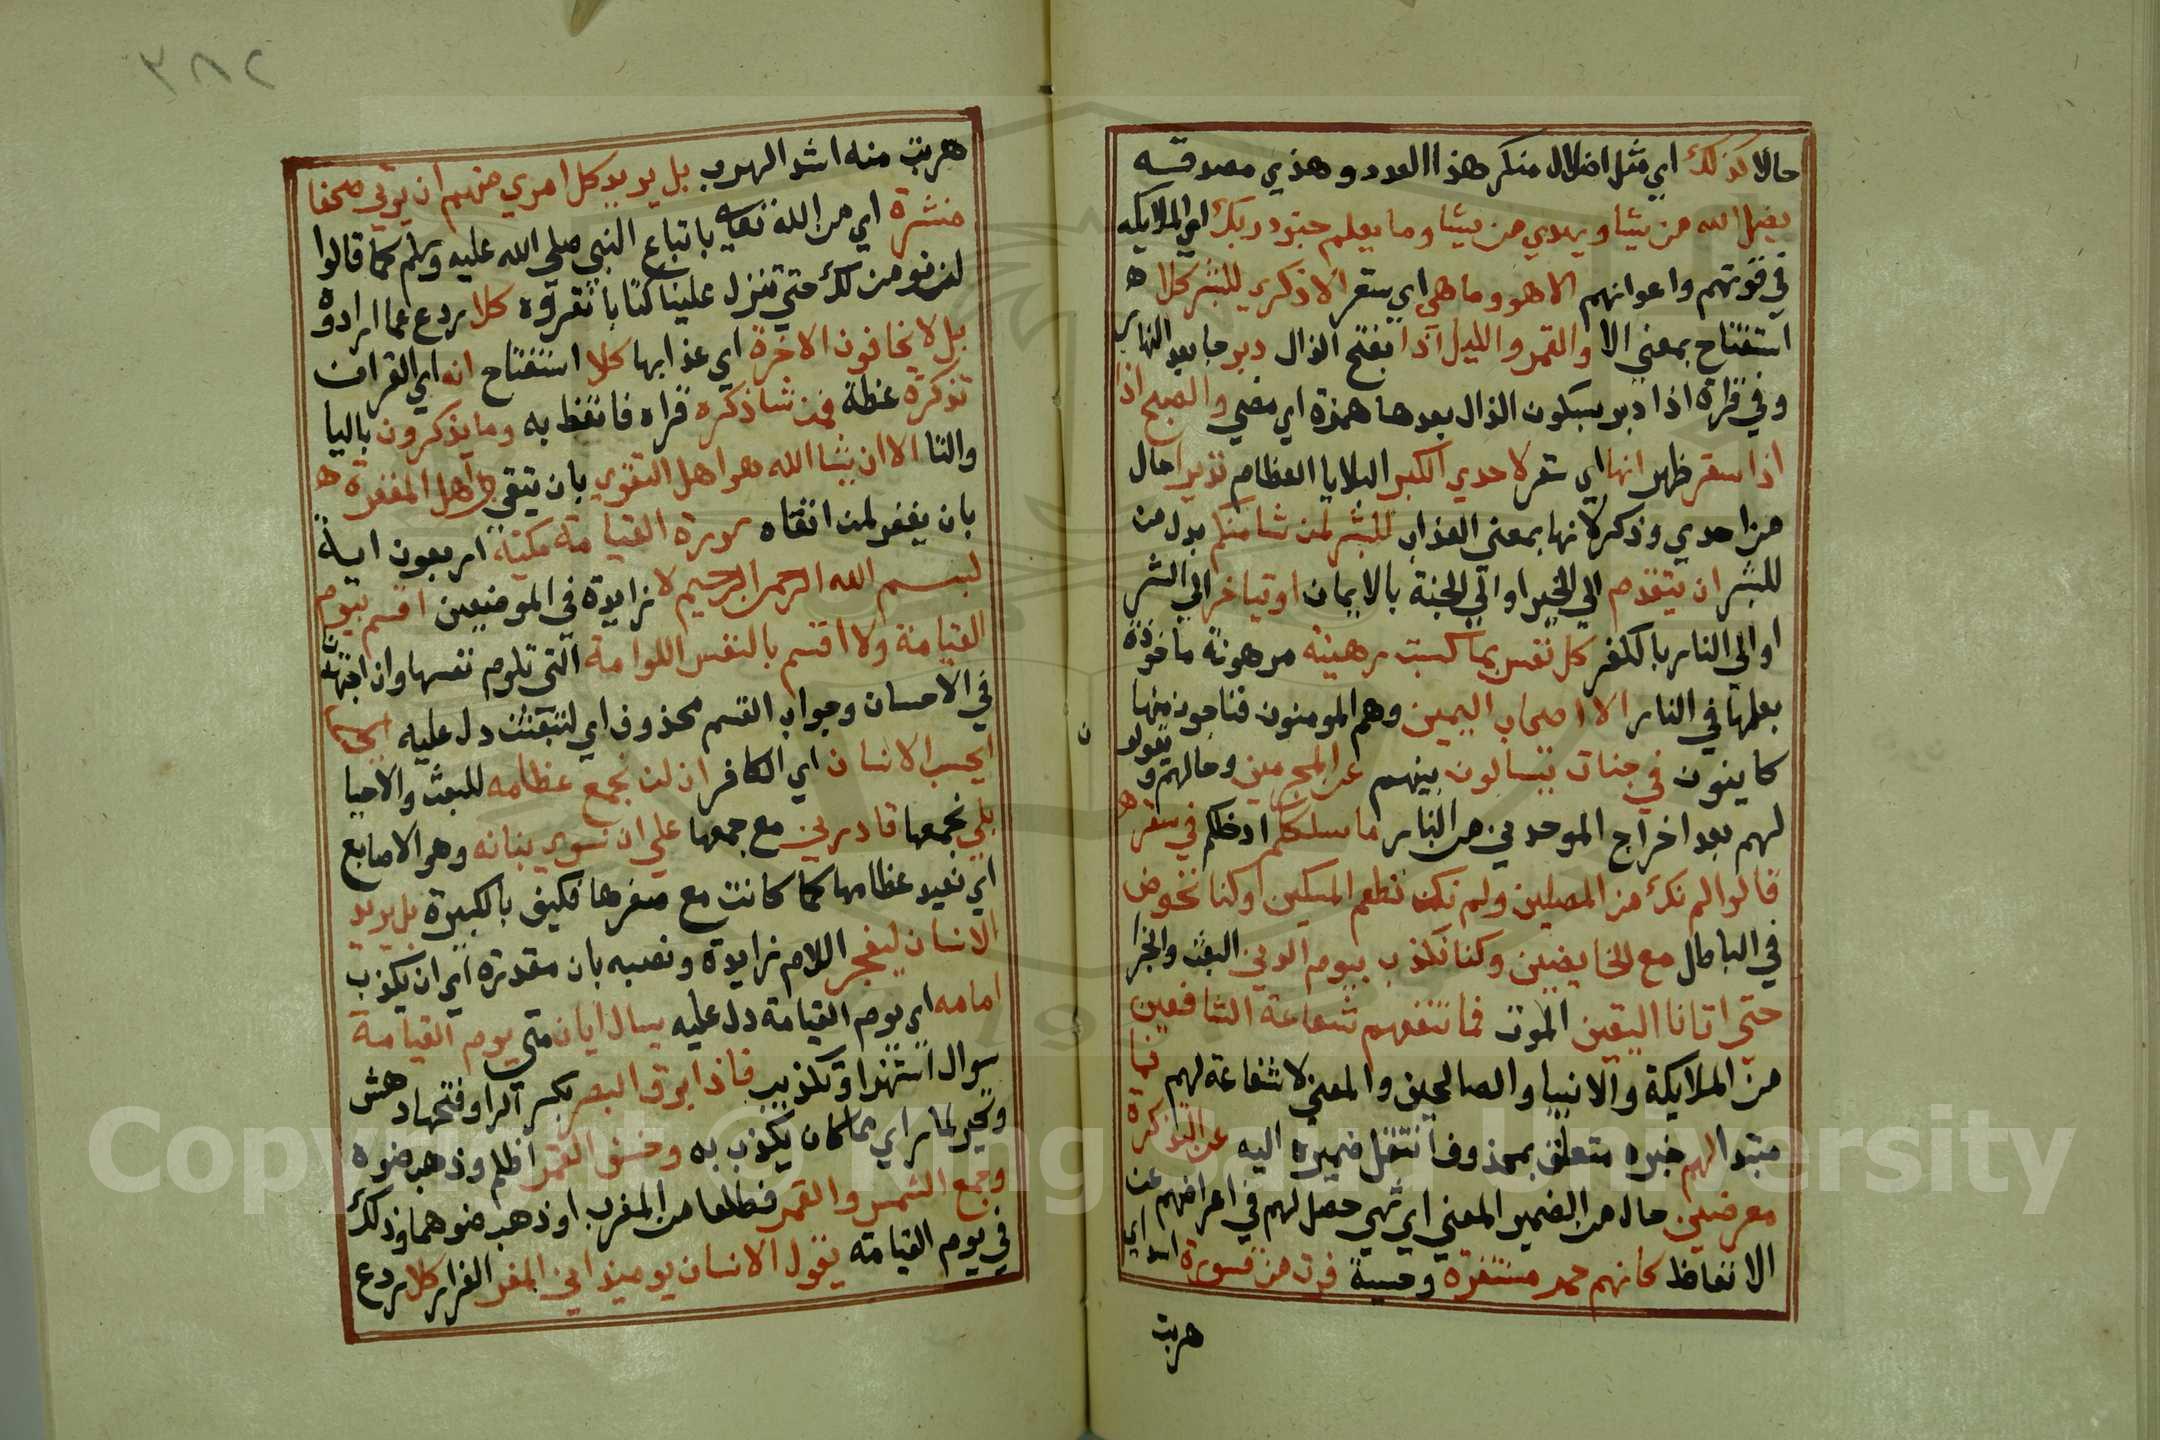 حالا كذلك اي مثل اضلال منكر هذا العدد وهدي مصدقه
يضل الله من يشا ويهدي من يشا وما يعلم جنود ربك اي الملايكه
في قوتهم واعوانهم الا هو وما هي اي سقر الا ذكرى للبشر كلا
استفتاح بمعني الا والقمر والليل اذا بفتح الذال دبر جا بعد النهار
وفي قراة اذا دبر بسكون الذال بعدها همزة اي مضي والصبح اذا
اذا سفر ظهر انها اي سقر لاحدي الكبر البلايا العظام نذيرا حال
من احدي وذكر لانها بمعني العذاب للبشر لمن شا منكم بدل من
للبشر ان يتقدم الي الخير او الي الجنة بالايمان او يتاخر الي الشر
او الي النار بالكفر كل نفس بما كسبت رهينة مرهونة ماخوذة
بعملها في النار الا اصحاب اليمين وهم المومنون فناجون منها
كاينون في جنات يتسالون بينهم عن المجرمين وحالهم ويقولو
لهم بعد اخراج الموحدين من النار ما سلككم ادخلكم في سقر
قالوا لم نك من المصلين ولم نك نطعم المسكين وكنا نخوض
في الباطل مع الخايضين وكنا نكذب بيوم الدين البعث والجزا
حتي اتانا اليقين الموت فما تنفعهم شفاعة الشافعين
من الملايكة والانبيا والصالحين والمعني لا شفاعة لهم فما
مبتدا لهم خبره متعلق بمحذوف انتقل ضميره اليه عن التذكرة
معرضين حال من الضمير المعني اي شي حصل لهم في اعراضهم عن
الاتعاظ كانهم حمر مستنفرة وحشية فرت من قسورة اسد اي
هربت
٣٨٢
هربت منه اشد الهرب بل يريد كل امري منهم ان يوتي صحفا
منشرة اي من الله تعالي باتباع النبي صلي الله عليه وسلم كما قالوا
لن نومن لك حتي تنزل علينا كتابا نقروه كلا ردع عما ارادوه
بل لا يخافون الاخرة اي عذابها كلا استفتاح انه اي القران
تذكرة عظة فمن شا ذكره قراه فاتعظ به وما يذكرون باليا
والتا الا ان يشا الله هو اهل التقوي بان يتقي واهل المغفرة
بان يغفر لمن اتقاه سورة القيامة مكية اربعون اية
بسم الله الرحمن الرحيم لا زايدة في الموضعين اقسم بيوم
القيامة ولا اقسم بالنفس اللوامة التي تلوم نفسها وان اجتهدت
في الاحسان وجواب القسم محذوف اي لتبعثن دل عليه
ايحسب الانسان اي الكافر ان لن نجمع عظامه للبعث والاحيا
بلي نجمعها قادرين مع جمعها علي ان نسوي بنانه وهو الاصابع
اي نعيد عظامها كما كانت مع صغرها فكيف بالكبيرة بل يريد
الانسان ليفجر اللام زايدة ونصبه بان مقدرة اي ان يكذب
امامه اي يوم القيامة دل عليه يسال ايان متي يوم القيامة
سوال استهزا وتكذيب فاذا برق البصر بكسر الرا وفتحها دهش
وتحير لما راي مما كان يكذب به وخسف القمر اظلم وذهب ضوه
وجمع الشمس والقمر فطلعا من المغرب او ذهب ضوهما وذلك
في يوم القيامة يقول الانسان يوميذ اين المفر الفرار كلا ردع
Copyright © King Saud University